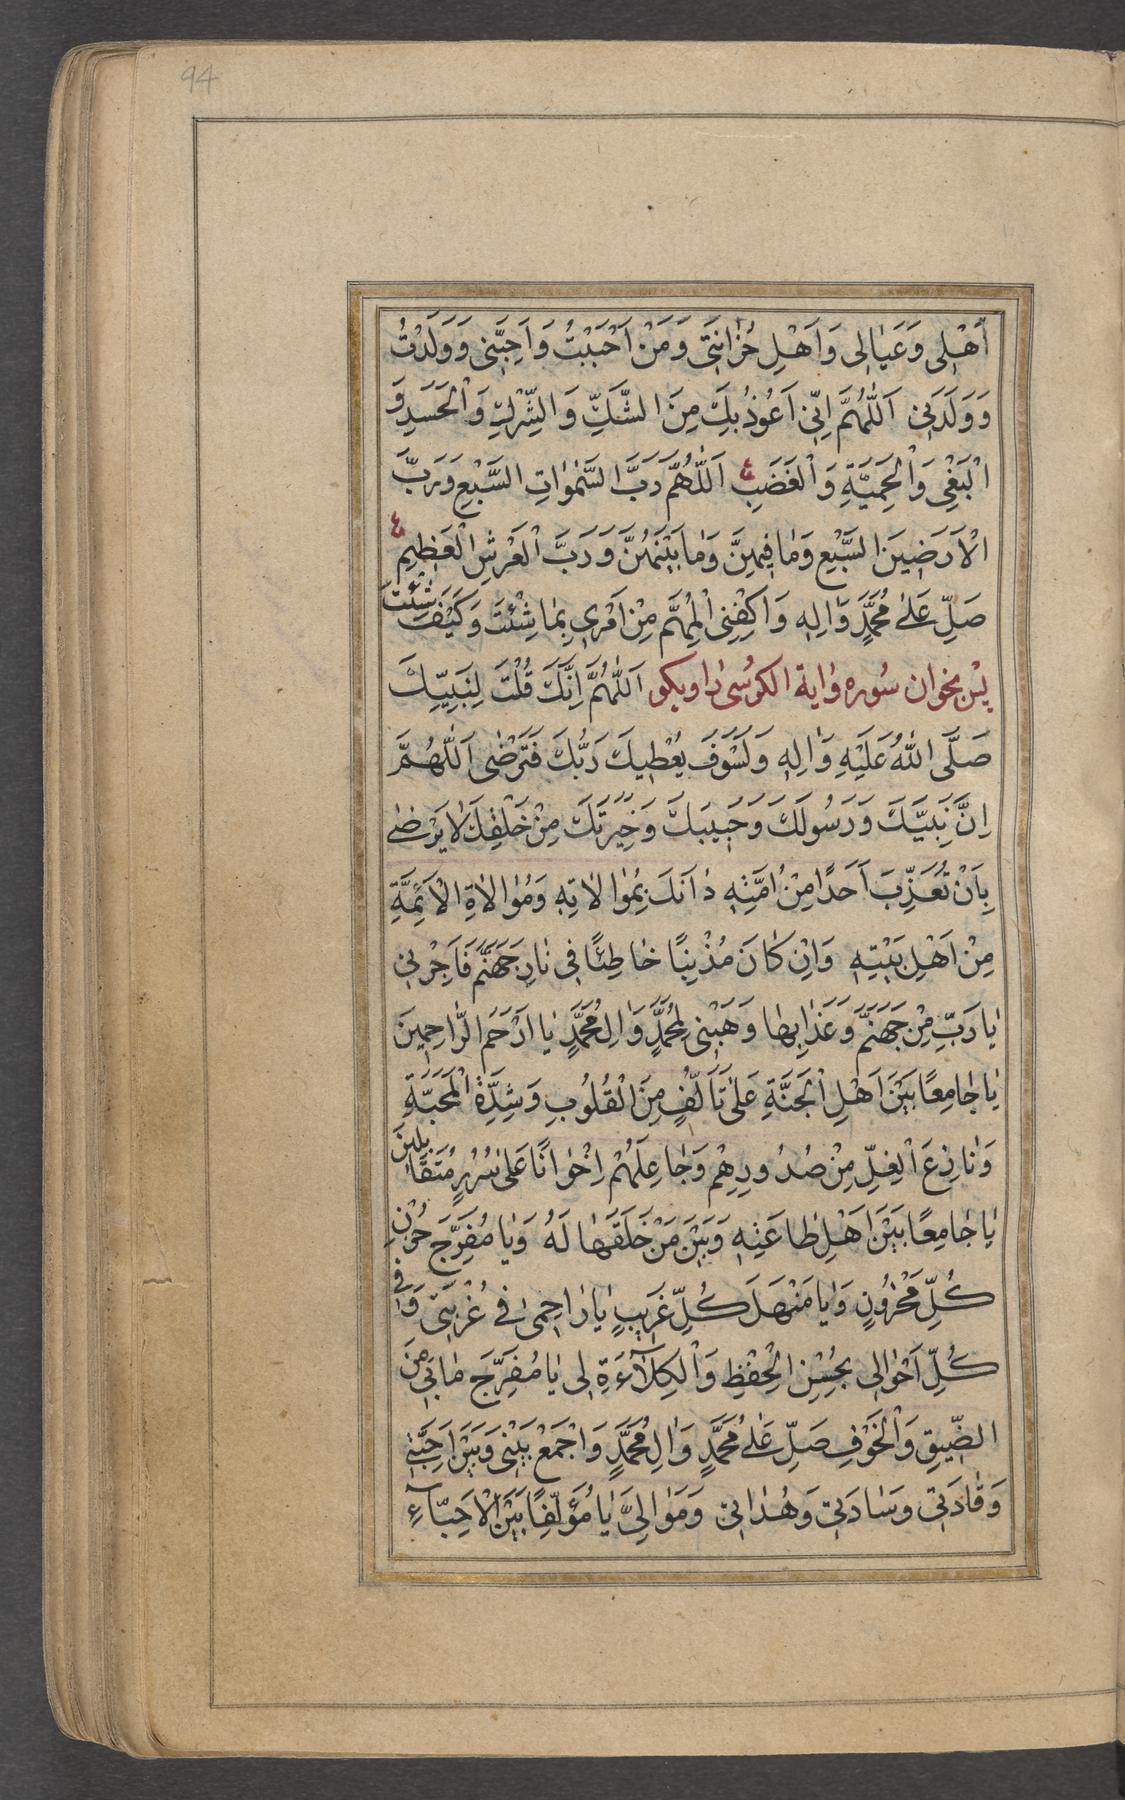 94
اَهْلِى وَعَيٰالِى وَاَهْلِ حُزٰانَتِى وَمَنْ اَحْبَبْتُ وَاَحَبَّنِى وَوَلَدْتُ
وَوَلَدَنِى اَللّٰهُمَّ اِنِّى اَعُوذُ بِكَ مِنَ الشَّكِّ وَالشِّرْكِ وَالْحَسَدِ وَ
الْبَغْىِ وَالْحَمِيَّةِ وَالْغَضَبِ ٤ اَللّٰهُمَّ رَبَّ السَّمٰوٰاتِ السَّبْعِ وَرَبَّ
الْاَرَضِينَ السَّبْعِ وَمٰا فِيهِنَّ وَمٰا بَيْنَهُنَّ وَرَبَّ الْعَرْشِ الْعَظِيمِ ٤
صَلِّ عَلىٰ مُحَمَّدٍ وَاٰلِهِ وَاكْفِنِى الْمُهِمَّ مِنْ اَمْرِى بِمٰا شِئْتَ وَكَيْفَ شِئْتَ
پس بخوان سُوره وٰاية الكرسُى را وبكو اَللّٰهُمَّ اِنَّكَ قُلْتَ لِنَبِيِّكَ
صَلَّى اللّٰهُ عَلَيْهِ وَاٰلِهِ وَلَسَوْفَ يُعْطِيكَ رَبُّكَ فَتَرْضٰى اَللّٰهُمَّ
اِنَّ نَبِيَّكَ وَرَسُولَكَ وَحَبِيبَكَ وَخِيَرَتَكَ مِنْ خَلْقِكَ لٰا يَرْضىٰ
بِاَنْ تُعَذِّبَ اَحَدًا مِنْ اُمَّتِهِ دٰانَكَ بِمُوٰالٰاتِهِ وَمُوٰالٰاةِ الْاَئِمَّةِ
مِنْ اَهْلِ بَيْتِهِ وَاِنْ كٰانَ مُذْنِبًا خٰاطِئًا فِى نٰارِ جَهَنَّمَ فَاَجِرْنِى
يٰا رَبِّ مِنْ جَهَنَّمَ وَعَذٰابِهٰا وَهَبْنِى لِمُحَمَّدٍ وَاٰلِ مُحَمَّدٍ يٰا اَرْحَمَ الرّٰاحِمِينَ
يٰا جٰامِعًا بَيْنَ اَهْلِ الْجَنَّةِ عَلىٰ تَاَلُّفٍ مِنَ الْقُلُوبِ وَشِدَّةِ الْمَحَبَّةِ
وَنٰازِعَ الْغِلِّ مِنْ صُدُورِهِمْ وَجٰاعِلَهُمْ اِخْوٰانًا عَلىٰ سُرُرٍ مُتَقٰابِلِينَ
يٰا جٰامِعًا بَيْنَ اَهْلِ طٰاعَتِهِ وَبَيْنَ مَنْ خَلَقَهٰا لَهُ وَيٰا مُفَرِّجَ حُزْنِ
كُلِّ مَحْزُونٍ وَيٰا مَنْهَلَ كُلِّ غَرِيبٍ يٰا رٰاحِمىٰ فِى غُرْبَتِى وَفِى
كُلِّ اَحْوٰالِى بِحُسْنِ الْحِفْظِ وَالْكِلٰاءَةِ لِى يٰا مُفَرِّجَ مٰا بِى مِنَ
الضّٖيقِ وَالْخَوْفِ صَلِّ عَلىٰ مُحَمَّدٍ وَاٰلِ مُحَمَّدٍ وَاجْمَعْ بَيْنِى وَبَيْنَ اَحِبَّتِى
وَقٰادَتِى وَسٰادَتِى وَهُدٰاتِى وَمَوٰالِىَّ يٰا مُؤَلِّفًا بَيْنَ الْاَحِبّٰاءِ